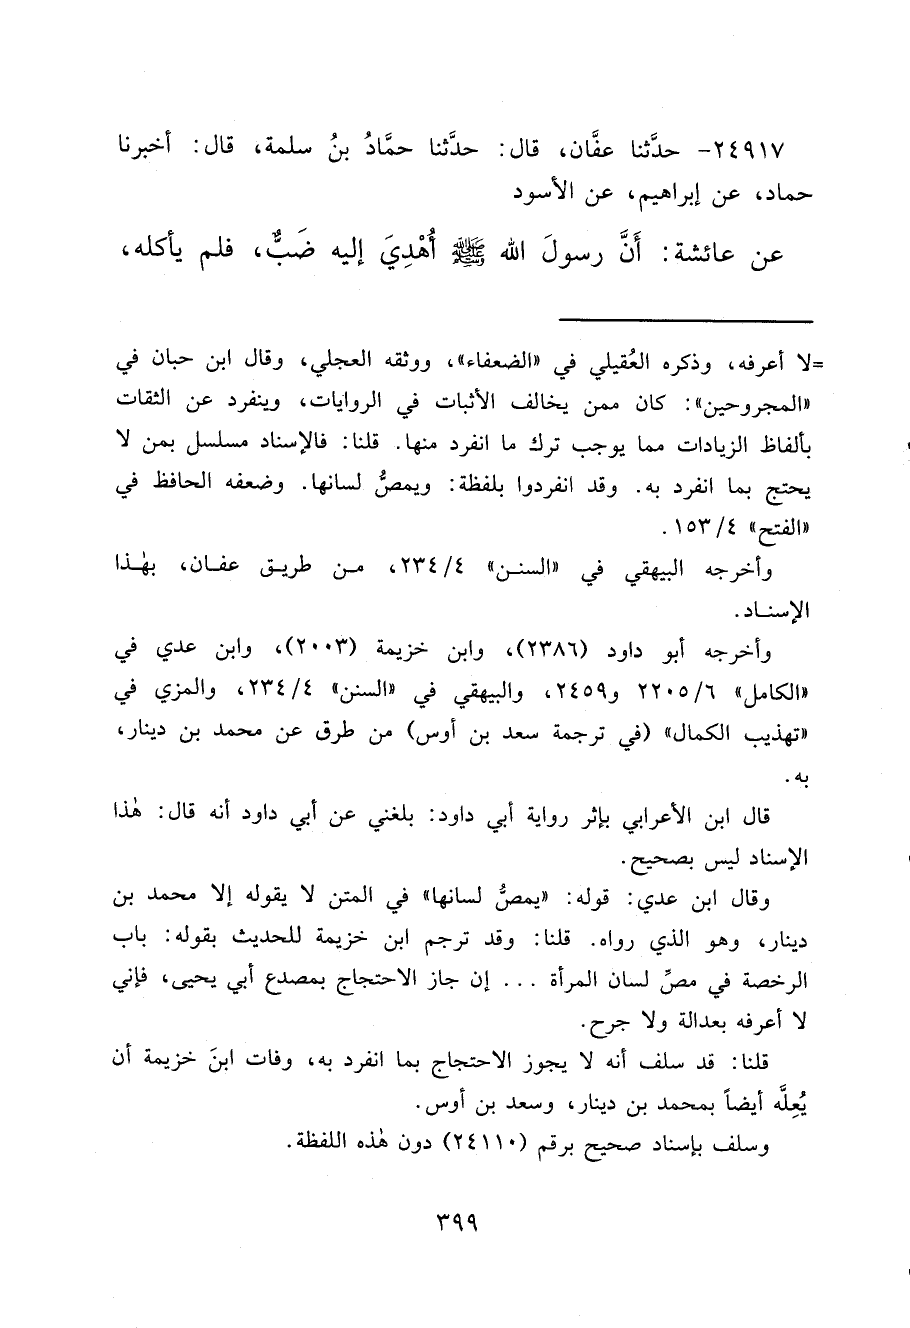 ٢٤٩١٧- حدَّثنا عفَّان، قال: حدَّثنا حمَّادُ بنُ سلمة، قال: أخبرنا
حماد، عن إبراهيم، عن الأسود
عن عائشة: أَنَّ رسولَ الله ﷺ أُهْدِيَ إليه ضَبٌّ، فلم يأكله،
=لا أعرفه، وذكره العُقيلي في «الضعفاء»، ووثقه العجلي، وقال ابن حبان في
«المجروحين»: كان ممن يخالف الأثبات في الروايات، وينفرد عن الثقات
بألفاظ الزيادات مما يوجب ترك ما انفرد منها. قلنا: فالإسناد مسلسل بمن لا
يحتج بما انفرد به. وقد انفردوا بلفظة: ويمصُّ لسانها. وضعفه الحافظ في
«الفتح» ١٥٣/٤.
وأخرجه البيهقي في «السنن» ٢٣٤/٤، من طريق عفان، بهٰذا
الإسناد.
وأخرجه أبو داود (٢٣٨٦)، وابن خزيمة (٢٠٠٣)، وابن عدي في
«الكامل» ٢٢٠٥/٦ و٢٤٥٩، والبيهقي في «السنن» ٢٣٤/٤، والمزي في
«تهذيب الكمال» (في ترجمة سعد بن أوس) من طرق عن محمد بن دينار،
به.
قال ابن الأعرابي بإثر رواية أبي داود: بلغني عن أبي داود أنه قال: هٰذا
الإسناد ليس بصحيح.
وقال ابن عدي: قوله: «يمصُّ لسانها» في المتن لا يقوله إلا محمد بن
دينار، وهو الذي رواه. قلنا: وقد ترجم ابن خزيمة للحديث بقوله: باب
الرخصة في مصِّ لسان المرأة ... إن جاز الاحتجاج بمصدع أبي يحيى، فإني
لا أعرفه بعدالة ولا جرح.
قلنا: قد سلف أنه لا يجوز الاحتجاج بما انفرد به، وفات ابنَ خزيمة أن
يُعِلَّه أيضاً بمحمد بن دينار، وسعد بن أوس.
وسلف بإسناد صحيح برقم (٢٤١١٠) دون هٰذه اللفظة.
٣٩٩